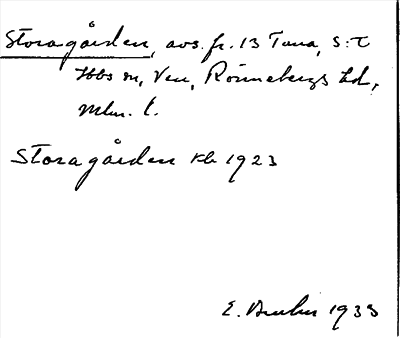 Storagården, avs. fr. 13 Tuna, S:t
Ibbs sn, Ven, Rönnebergs hd,
Mlm. l.
Storagården Kb 1923
E. 1933